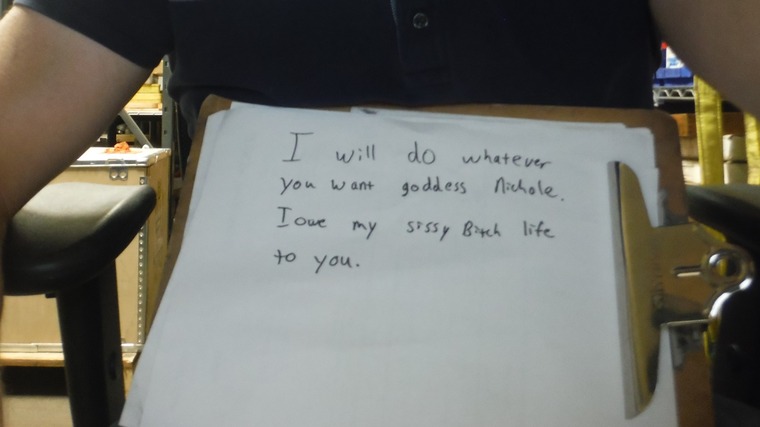 I will do whatever
you want goddess Nichole.
I owe my sissy Bitch life
to you.